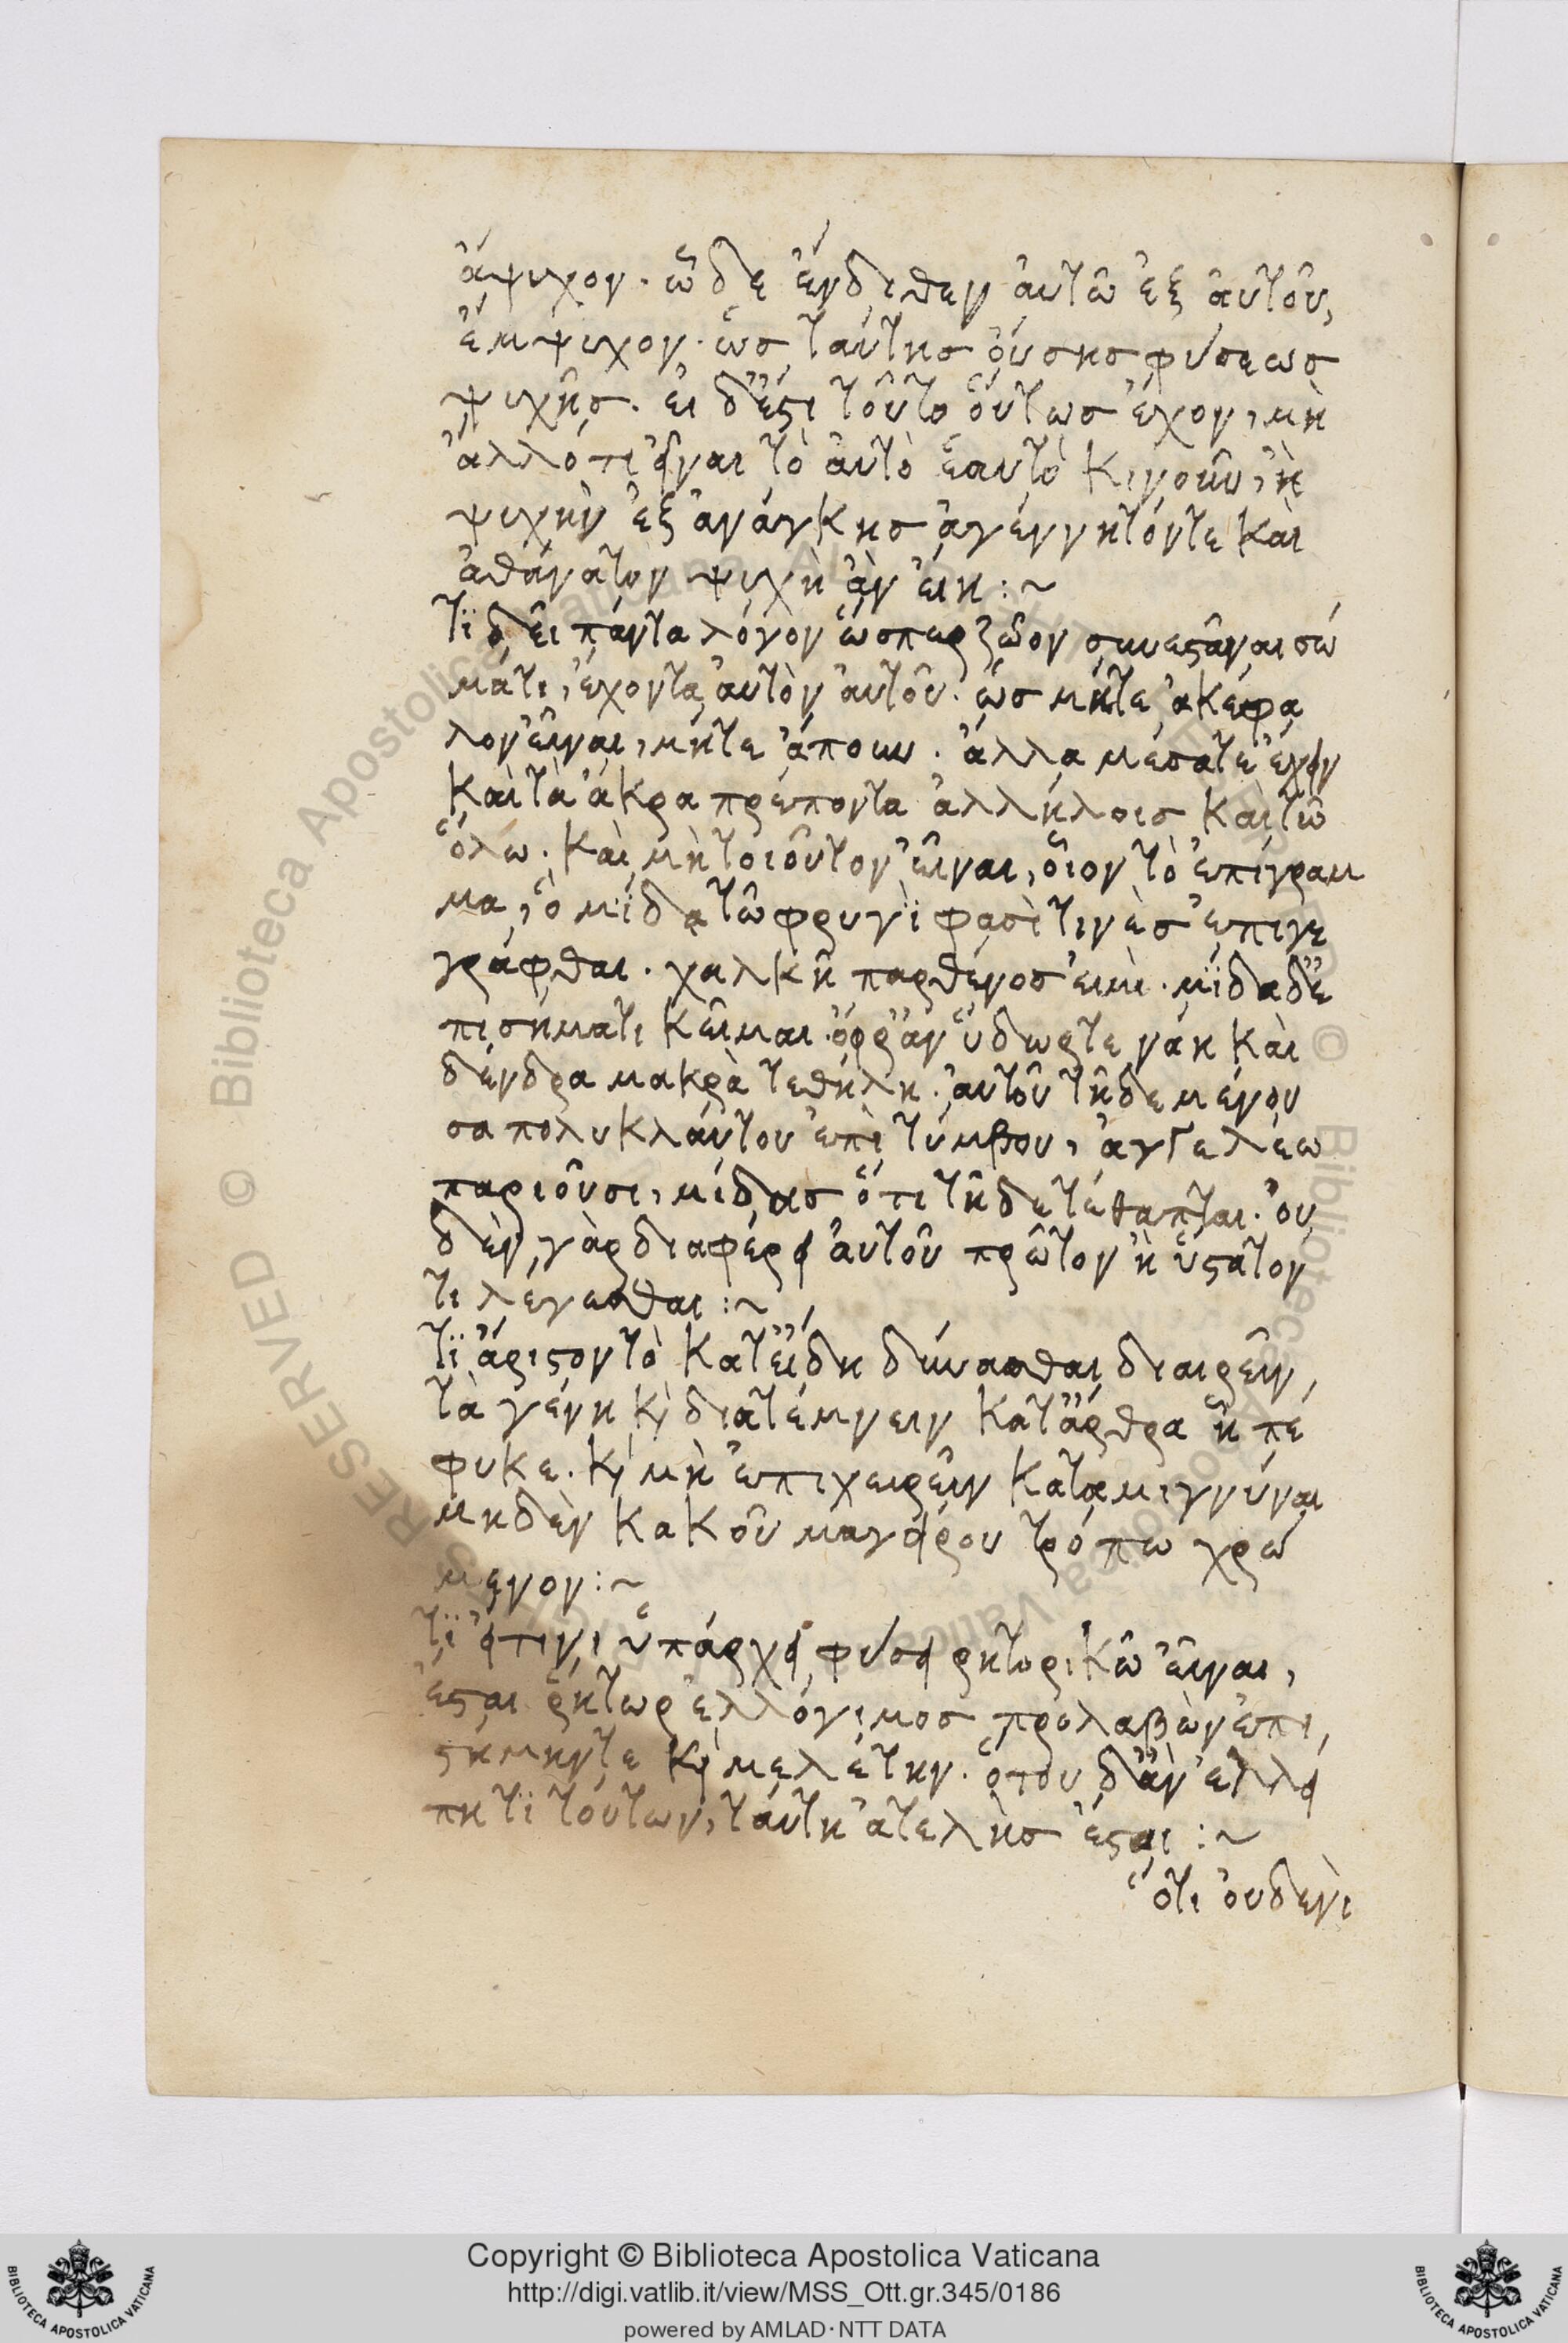 ἄψυχον· ὧ δὲ ἔνδοθεν ἀυτῶ ἐξ ἀυτοῦ,
ἔμψυχον· ὡς ταύτης ὄυσης φύσεως
ψυχῆς. ἐι δ' ἔστι τοῦτο ὅυτως ἔχον, μὴ
ἄλλό τι εἶναι τὸ ἀυτὸ ἑαυτὸ κινοῦν, ἢ
ψυχὴν ἐξ ἀνάγκης ἀγέννητόν τε καὶ
ἀθάνατον ψυχὴ ἂν ἔιη :~
τϊ δεῖ πάντα λόγον ὥσπερ ζῶον συνεστάναι σώ
ματι, ἔχοντα ἀυτὸν ἀυτοῦ· ὥς μήτε ἀκέφα
λον εἶναι, μήτε ἄπουν. ἀλλα μέσατε ἔχειν
καὶ τὰ ἄκρα πρέποντα ἀλλήλοις καὶ τῶ
ὅλω. καὶ μὴ τοιοῦτον εἶναι, ὅιον τὸ ἐπίγραμ
μα, ὃ μϊδα τῶ φρυγϊ φασὶ τινὲς ἐπιγε
γράφθαι. χαλκῆ παρθένος ἐιμὶ. μϊδα δ' ἐ
πι σηματι κεῖμαι. ὄφρ' ἂν ὕδωρ τε νάη καὶ
δένδρα μακρὰ τεθήλη. ἀυτοῦ τῆδε μένου
σα πολυκλάυτου ἐπὶ τύμβου, ἀγγελέω
παριοῦσι, μίδας ὅτι τῆδε τέθαπται. ὀυ
δὲν γὰρ διαφέρει ἀυτοῦ πρῶτον ἢ ὕστατον
τι λέγεσθαι :~
τϊ ἄριστον τὸ κατ' ἔιδη δύνασθαι διαιρεῖν,
τὰ γένη κὶ διατέμνειν κατ' ἄρθρα ἧ πέ
φυκε. κὶ μὴ ἐπιχειρεῖν καταμιγνύναι
μηδὲν κακοῦ μαγείρου τρόπω χρώ
μενον :~
τϊ εἴ τινι ὑπάρχει φύσει ρητορικῶ εἶναι,
ἔσται ῥήτωρ ἐλλόγιμος προλαβὼν ἐπι,
στήμην τε κὶ μελέτην. ὅτου δ' ἂν ἐλλεί
πη τϊ τούτων, ταύτη ἀτελὴς ἔσται :~
ὅτι ὀυδενὶ
Copyright © Biblioteca Apostolica Vaticana
http://digi.vatlib.it/view/MSS_Ott.gr.345/0186
powered by AMLAD·NTT DATA